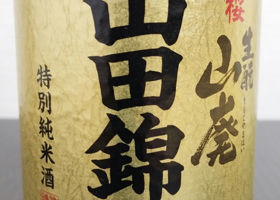 桜
生酛
山廃
山田錦
特別純米酒